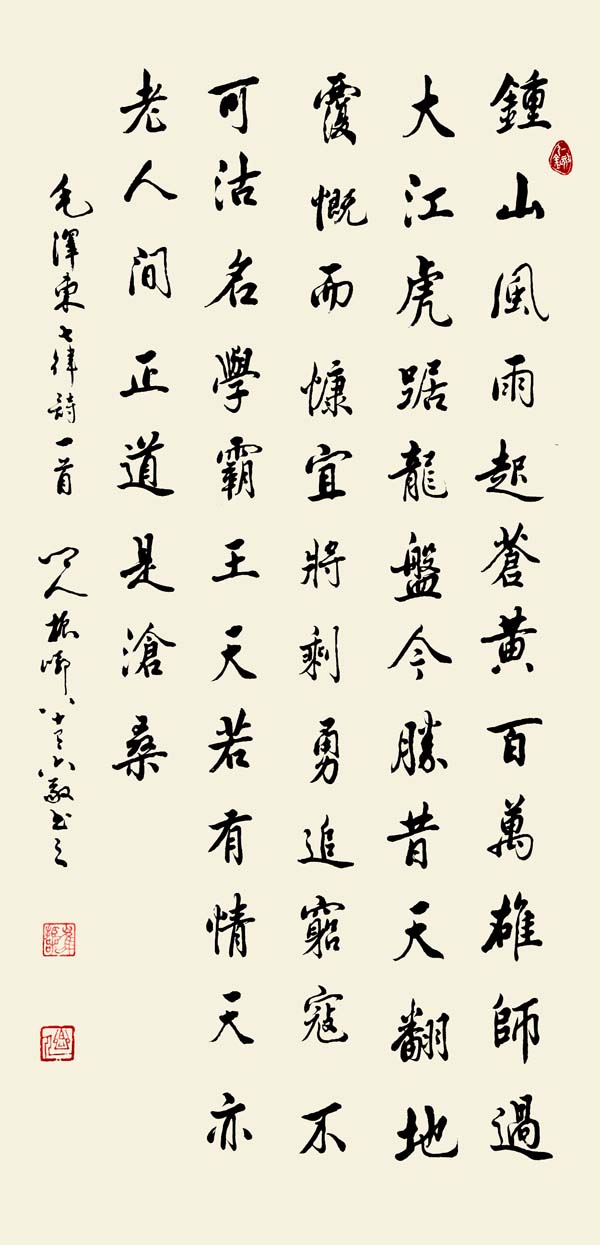 鍾山風雨起蒼黃百萬雄師過
大江虎踞龍盤今勝昔天翻地
覆慨而慷宜將剩勇追窮寇不
可沽名學霸王天若有情天亦
老人間正道是滄桑
毛澤東七律詩一首